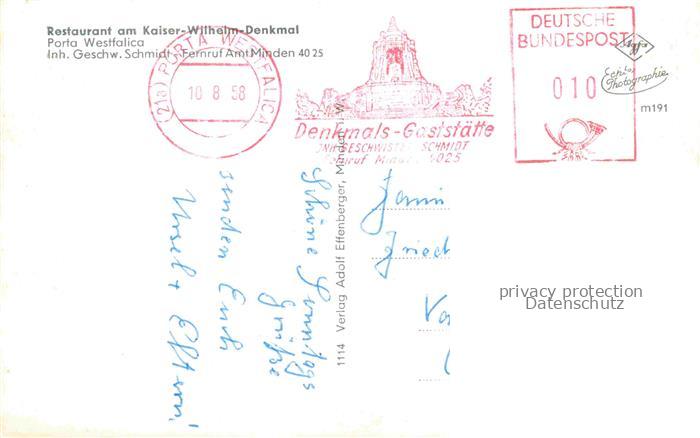 Restaurant am Kaiser-Wilhelm-Denkmal
Porta Westfalica
Inh. Geschw. Schmidt - Fernruf Amt Minden 40 25
(21a) PORTA WESTFALICA
10 8 58
Denkmals-Gaststätte
INH. GESCHWISTER SCHMIDT
Fernruf Minden 4025
DEUTSCHE
BUNDESPOST
010
Agfa
Echte
Photographie
m191
1114 Verlag Adolf Effenberger, Minden i. W.
Schöne Sonntags
Grüße
senden Euch
Ursel + Eltern!
Fried
privacy protection
Datenschutz